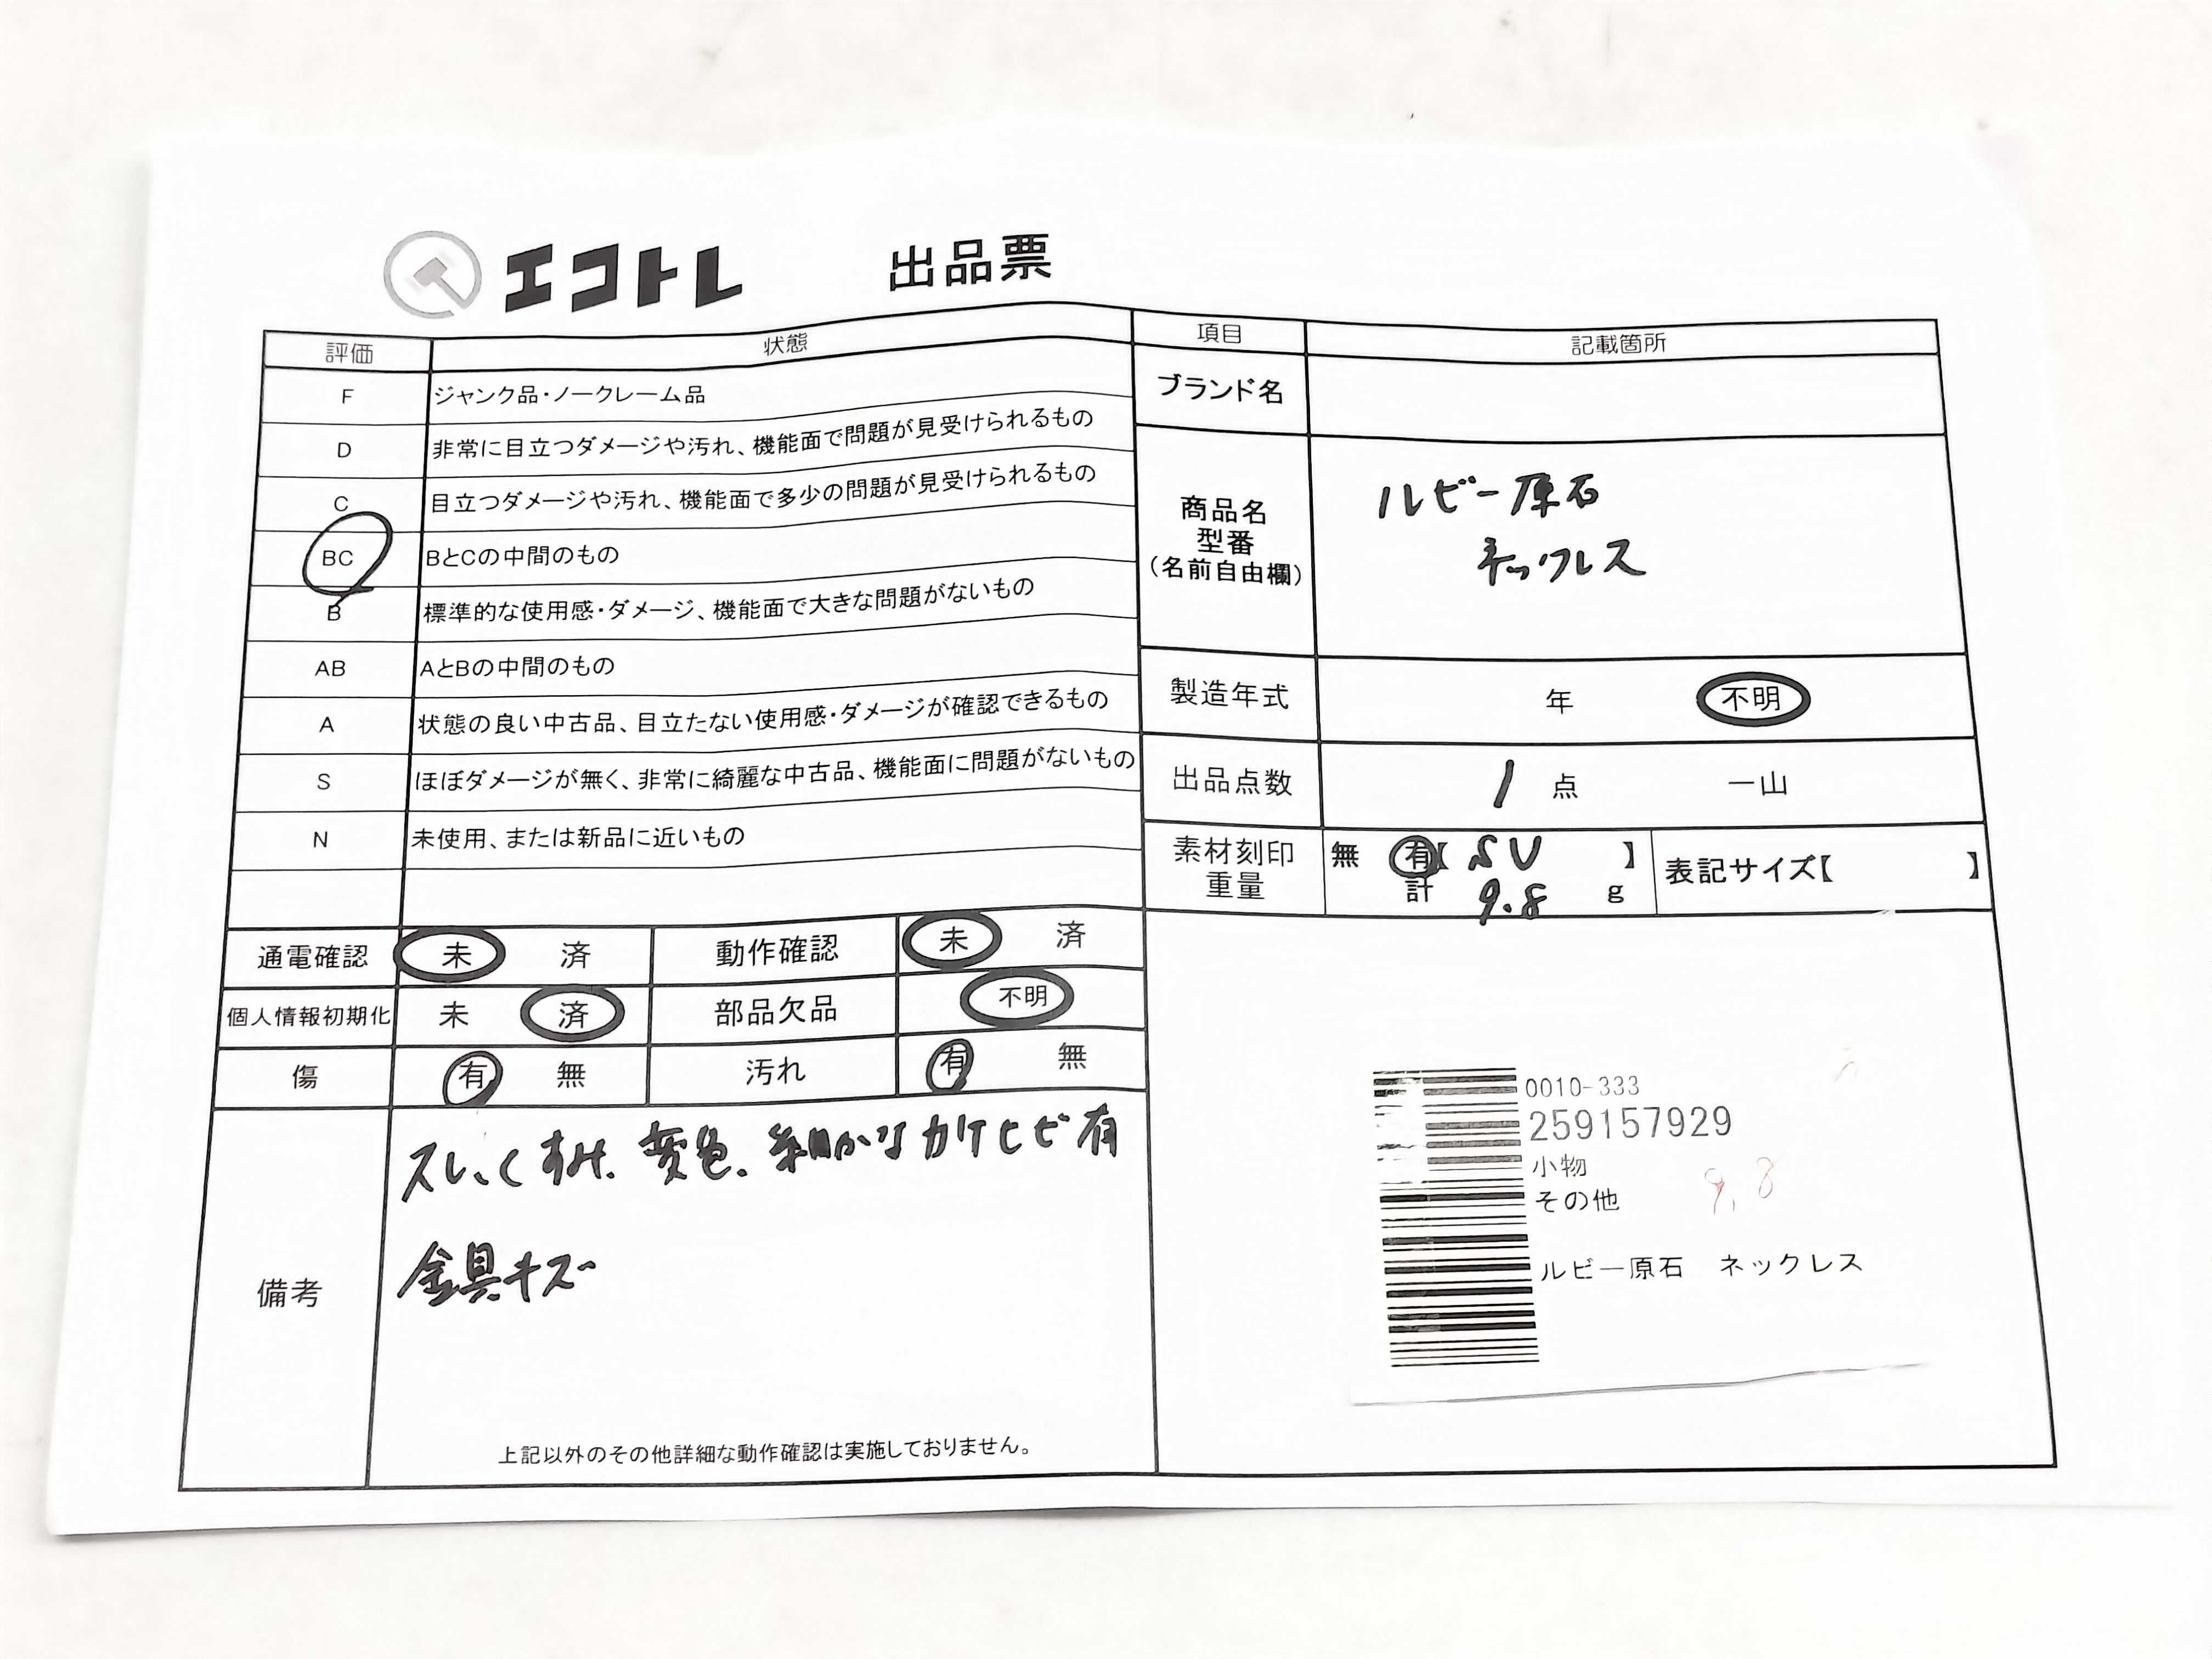 エコトレ 出品票
評価 状態
F ジャンク品・ノークレーム品
D 非常に目立つダメージや汚れ、機能面で問題が見受けられるもの
C 目立つダメージや汚れ、機能面で多少の問題が見受けられるもの
BC BとCの中間のもの
B 標準的な使用感・ダメージ、機能面で大きな問題がないもの
AB AとBの中間のもの
A 状態の良い中古品、目立たない使用感・ダメージが確認できるもの
S ほぼダメージが無く、非常に綺麗な中古品、機能面に問題がないもの
N 未使用、または新品に近いもの
通電確認 未 済 動作確認 未 済
個人情報初期化 未 済 部品欠品 不明
傷 有 無 汚れ 有 無
備考
スレ、くすみ、変色、細かなカケヒビ有
金具キズ
上記以外のその他詳細な動作確認は実施しておりません。
項目 記載箇所
ブランド名
商品名
型番
(名前自由欄)
ルビー原石
ネックレス
製造年式 年 不明
出品点数 1 点 一山
素材刻印 無 有【 SV 】
重量 計 9.8 g
表記サイズ【 】
0010-333
259157929
小物
その他 9.8
ルビー原石 ネックレス